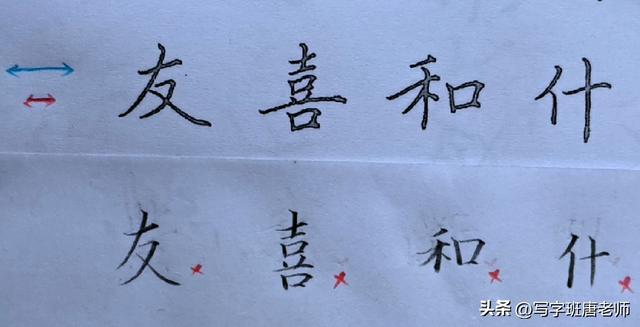 友 喜 和 什
友 喜 和 什
头条 @写字班唐老师